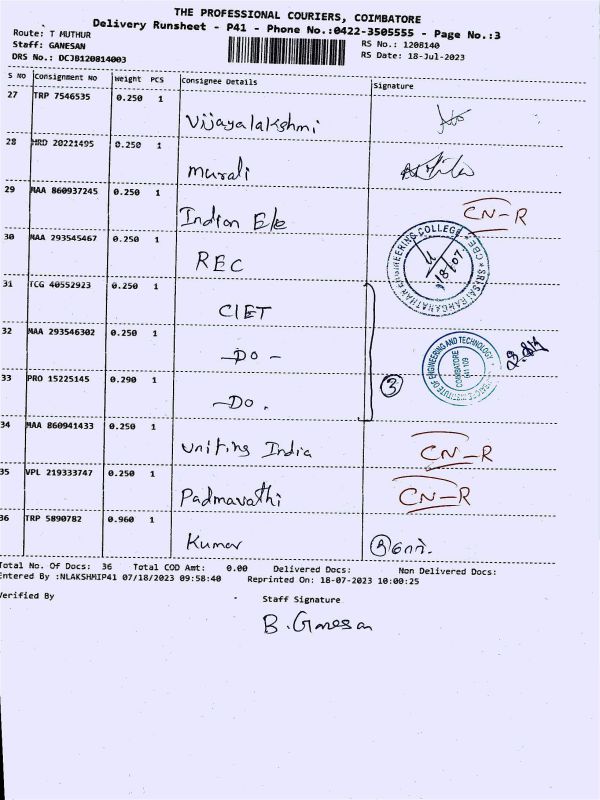 THE PROFESSIONAL COURIERS, COIMBATORE
Delivery Runsheet - P41 - Phone No.:0422-3505555 - Page No.:3
Route: T MUTHUR
RS No.: 1208140
Staff: GANESAN
RS Date: 18-Jul-2023
DRS No.: DCJB120814003
S NO Consignment No Weight PCS Consignee Details Signature
27 TRP 7546535 0.250 1
Vijayalakshmi
28 HRD 20221495 0.250 1
murali
29 MAA 860937245 0.250 1
Indian E/e CN-R
30 MAA 293545467 0.250 1
REC
ENGINEERING COLLEGE * CBE * SRI SAI RANGANATHAN
18/07
31 TCG 40552923 0.250 1
CIET
32 MAA 293546302 0.250 1
-Do-
OF ENGINEERING AND TECHNOLOGY
COIMBATORE
641 109
33 PRO 15225145 0.290 1
3
-Do.
34 MAA 860941433 0.250 1
uniting India CN-R
35 VPL 219333747 0.250 1
Padmavathi CN-R
36 TRP 5890782 0.960 1
Kumar
Total No. Of Docs: 36 Total COD Amt: 0.00 Delivered Docs: Non Delivered Docs:
Entered By :NLAKSHMIP41 07/18/2023 09:58:40 Reprinted On: 18-07-2023 10:00:25
Verified By Staff Signature
B. Ganesan